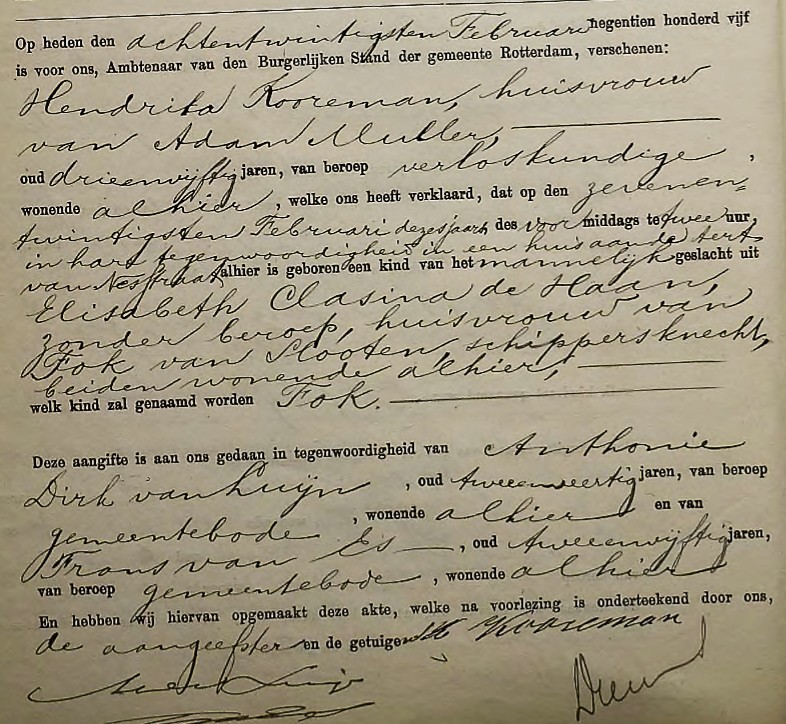 Op heden den achtentwintigsten Februari negentien honderd vijf
is voor ons, Ambtenaar van den Burgerlijken Stand der gemeente Rotterdam, verschenen:
Hendrika Kooreman, huisvrouw
van Adam Muller,
oud drieenvijftig jaren, van beroep verloskundige,
wonende alhier, welke ons heeft verklaard, dat op den zevenen-
twintigsten Februari dezes jaars des voor middags te twee uur,
in hare tegenwoordigheid in een huis aan de
van Nesstraat alhier is geboren een kind van het mannelijk geslacht uit
Elisabeth Clasina de Haan,
zonder beroep, huisvrouw van
Fok van Slooten, schippersknecht,
beiden wonende alhier,
welk kind zal genaamd worden Fok.
Deze aangifte is aan ons gedaan in tegenwoordigheid van Anthonie
Dirk van Luijn, oud tweeenveertig jaren, van beroep
gemeentebode, wonende alhier en van
Frans van Es, oud tweeenvijftig jaren,
van beroep gemeentebode, wonende alhier
En hebben wij hiervan opgemaakt deze akte, welke na voorlezing is onderteekend door ons,
de aangeefster en de getuigen H Kooreman